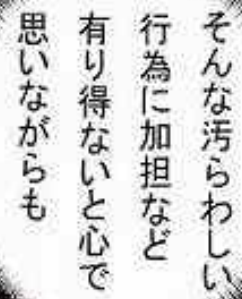 そんな汚らわしい
行為に加担など
有り得ないと心で
思いながらも